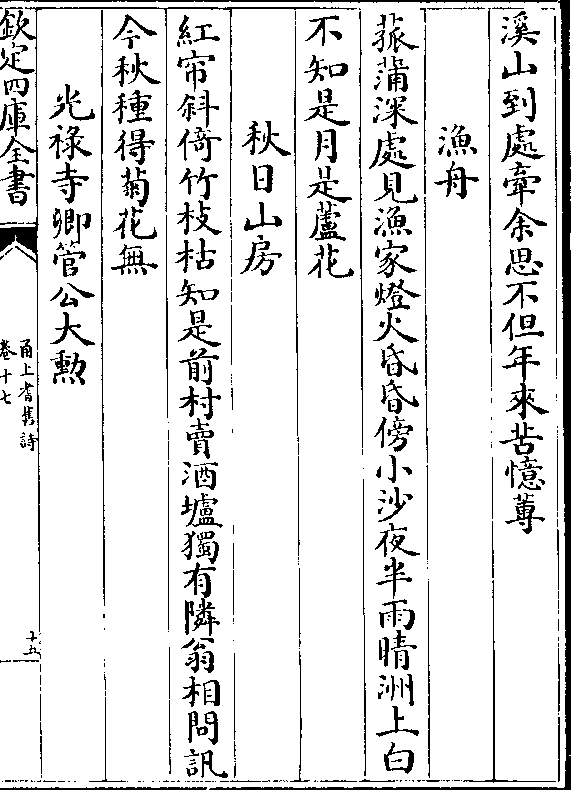 溪山到處牽余思不但年來苦憶蓴
漁舟
菰蒲深處見漁家燈火昏昏傍小沙夜半雨晴洲上白
不知是月是蘆花
秋日山房
紅帘斜倚竹枝枯知是前村賣酒壚獨有隣翁相問訊
今秋種得菊花無
光祿寺卿管公大勲
欽定四庫全書
甬上耆舊詩
卷十七
十五